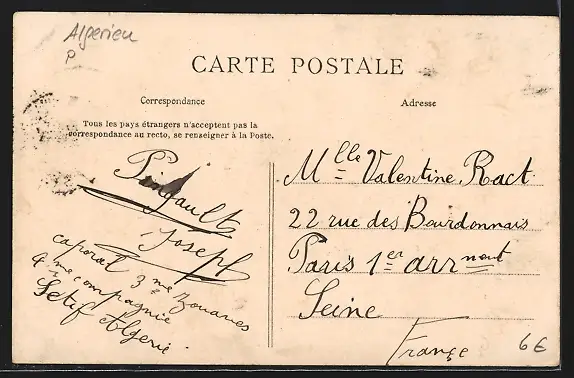 Algerien
P
CARTE POSTALE
Correspondance
Adresse
Tous les pays étrangers n'acceptent pas la
correspondance au recto, se renseigner à la Poste.
Pingault
Joseph
caporal 3me Zouaves
4me compagnie
Sétif Algérie.
Mlle Valentine Ract
22 rue des Bourdonnais
Paris 1er arrment
Seine
France
6€